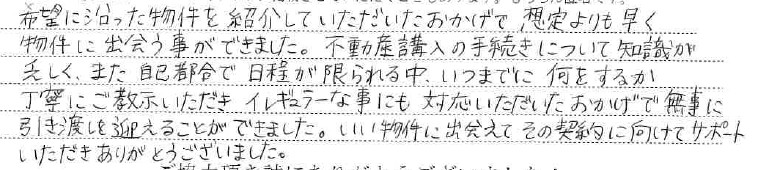 希望に沿った物件を紹介していただいたおかげで 想定よりも早く
物件に出会う事ができました。不動産購入の手続きについて知識が
乏しく、また 自己都合で 日程が限られる中、いつまでに 何をするか
丁寧にご教示いただき イレギュラーな事にも 対応いただいたおかげで無事に
引き渡しを迎えることができました。いい物件に出会えて その契約に向けてサポート
いただきありがとうございました。